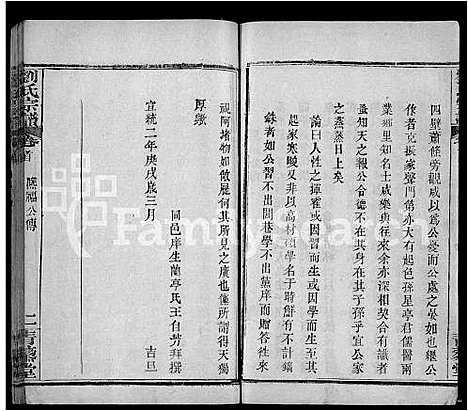 四壁蕭條旁觀咸以爲公憂而公處之晏如也繼公
者克振家聲門第亦大有起色孫星亭君儒醫兩
業鄉里知名士咸樂與往來余亦深相契合有識者
益知天之報公令德不在其身在其子孫乎宜公家
之蒸蒸日上矣
論曰人性之揮霍或因習而生或因學而生當其
起家寒畯又非以高材碩學名于時鮮有不計錙
銖者如公習不出閭巷學不出黨庠而贈答往來
視阿堵物如敝屣何其所見之廣也僅所謂天獨
厚歟
宣統二年庚戌歲三月 吉旦
同邑庠生蘭亭氏王自芳拜撰
劉氏宗譜
卷首
蔭福公傳
二
青藜堂
FamilySearch